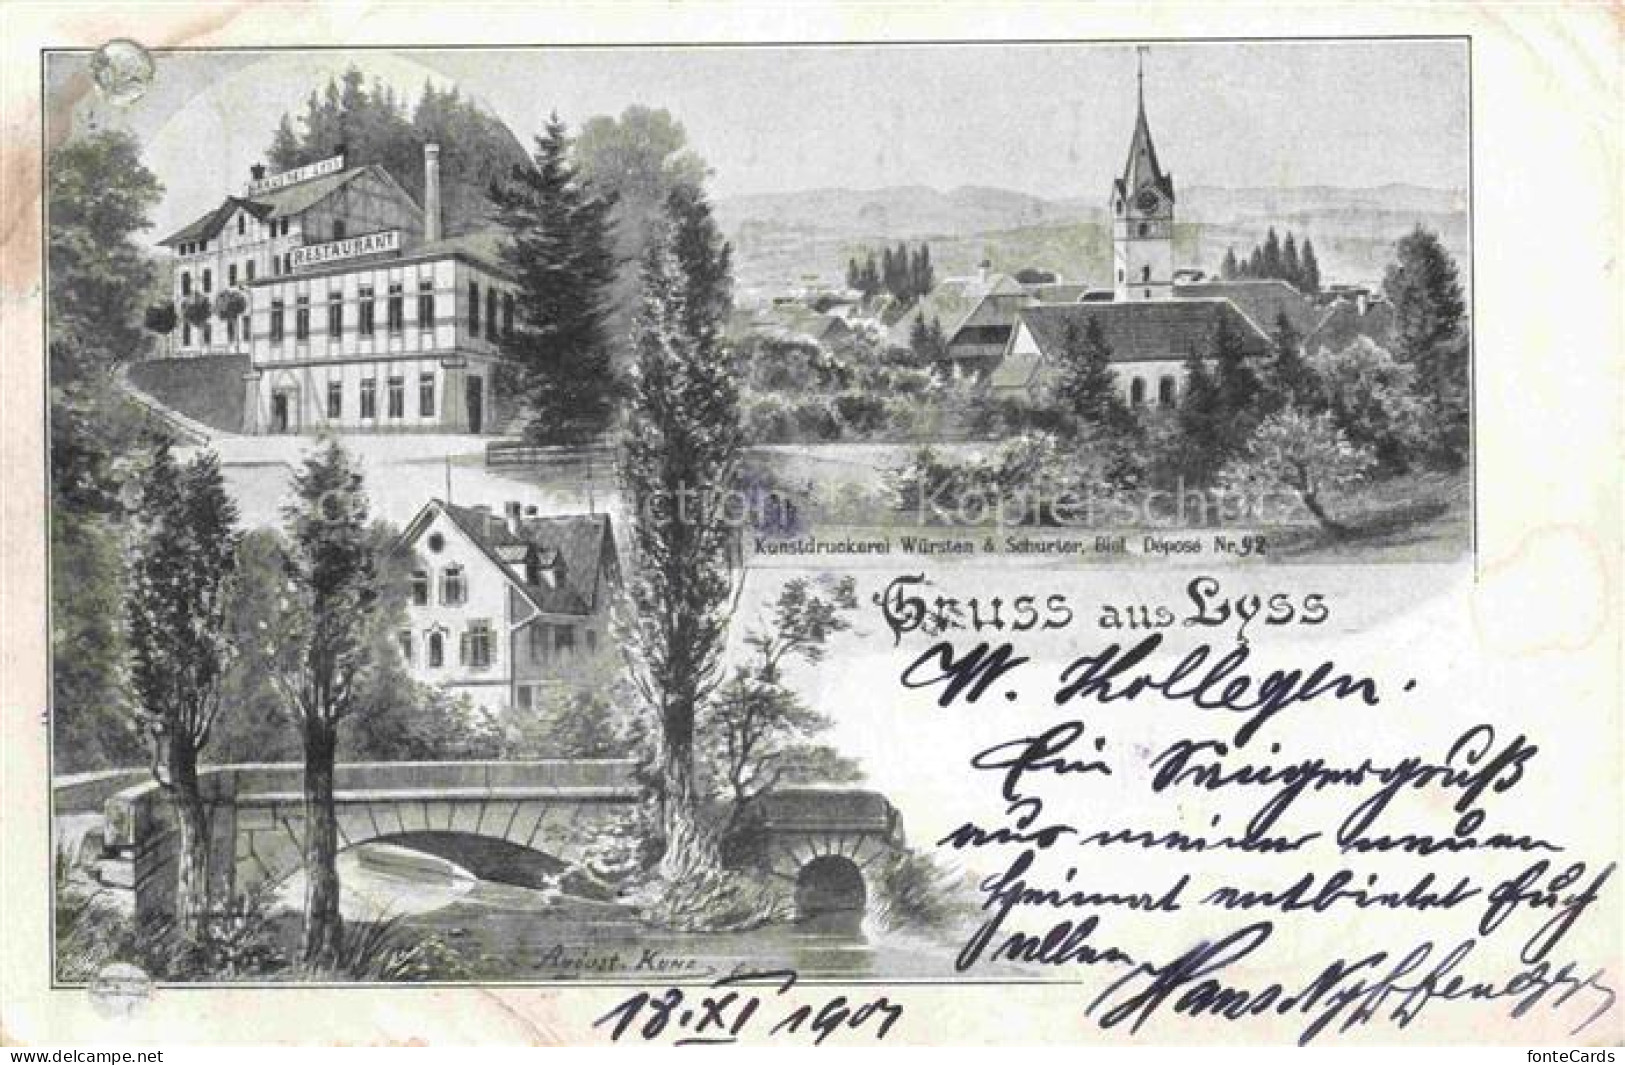 BRAUEREI LYSS
RESTAURANT
Kunstdruckerei Würsten & Schurter, Biel. Déposé Nr. 92
Gruss aus Lyss
W. Kollegen.
Ein Sängergruß
aus meiner neuen
Heimat entbietet Euch
allen
Hans Nyffenegger
August. Kunz
18. XI 1901
www.delcampe.net
fonteCards